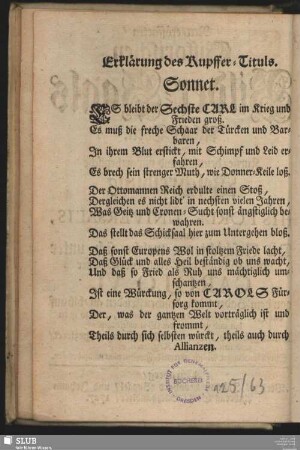 Erklärung des Kupffer-Tituls.
Sonnet.
ES bleibt der Sechste CARL im Krieg und
Frieden groß.
Es muß die freche Schaar der Türcken und Bar-
baren,
In ihrem Blut erstickt, mit Schimpf und Leid er-
fahren,
Es brech sein strenger Muth, wie Donner-Keile loß.
Der Ottomannen Reich erdulte einen Stoß,
Dergleichen es nicht lidt' in nechsten vielen Jahren,
Was Geitz und Cronen-Sucht sonst ängstiglich be-
wahren.
Das stellt das Schicksaal hier zum Untergehen bloß.
Daß sonst Europens Wol in stoltzem Friede lacht,
Daß Glück und alles Heil beständig ob uns wacht,
Und daß so Fried als Ruh uns mächtiglich um-
schantzen,
Ist eine Würckung, so von CAROLS Für-
sorg kommt,
Der, was der gantzen Welt vorträglich ist und
frommt,
Theils durch sich selbsten würckt, theils auch durch
Allianzen.
BÜCHEREI
DRESDEN
A25/63
SLUB